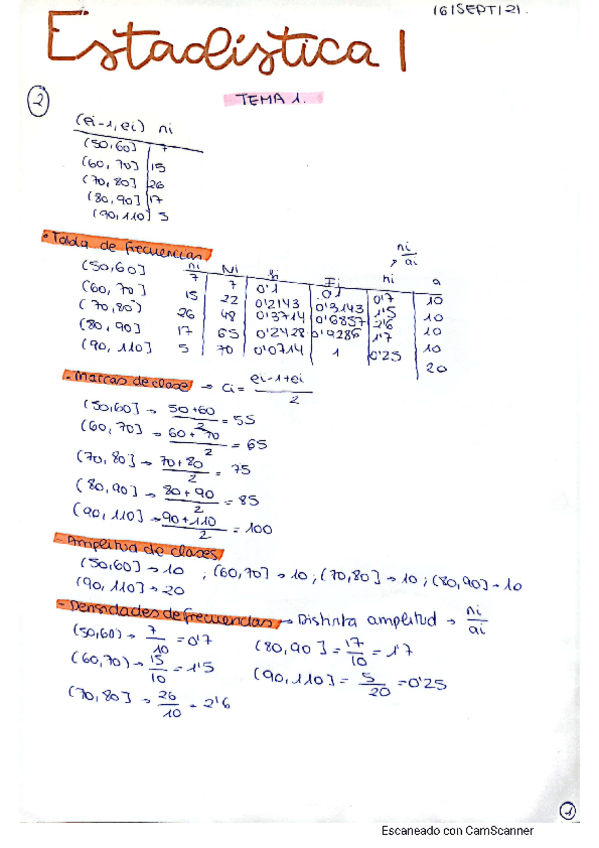 16|SEPT|21.
Estadística 1
TEMA 1.
2
(ei-1, ei] ni
(50,60] 7
(60, 70] 15
(70, 80] 26
(80, 90] 17
(90, 110] 5
• Tabla de frecuencias
ni/ai
ni Ni fi Fi hi a
(50,60] 7 7 0'1 0'1 0'7 10
(60, 70] 15 22 0'2143 0'3143 1'5 10
(70, 80] 26 48 0'3714 0'6857 2'6 10
(80, 90] 17 65 0'2428 0'9286 1'7 10
(90, 110] 5 70 0'0714 1 0'25 20
- Marcas de clase → Ci = ei-1+ei / 2
(50,60] → 50+60 / 2 = 55
(60, 70] → 60+70 / 2 = 65
(70, 80] → 70+80 / 2 = 75
(80, 90] → 80+90 / 2 = 85
(90, 110] → 90+110 / 2 = 100
- Amplitud de clases
(50,60] → 10 ; (60,70] → 10 ; (70,80] → 10 ; (80,90] → 10
(90, 110] → 20
- Densidades de frecuencias → Distinta amplitud → ni/ai
(50,60) → 7/10 = 0'7 (80,90] = 17/10 = 1'7
(60,70) → 15/10 = 1'5 (90,110] = 5/20 = 0'25
(70, 80] → 26/10 = 2'6
1
Escaneado con CamScanner